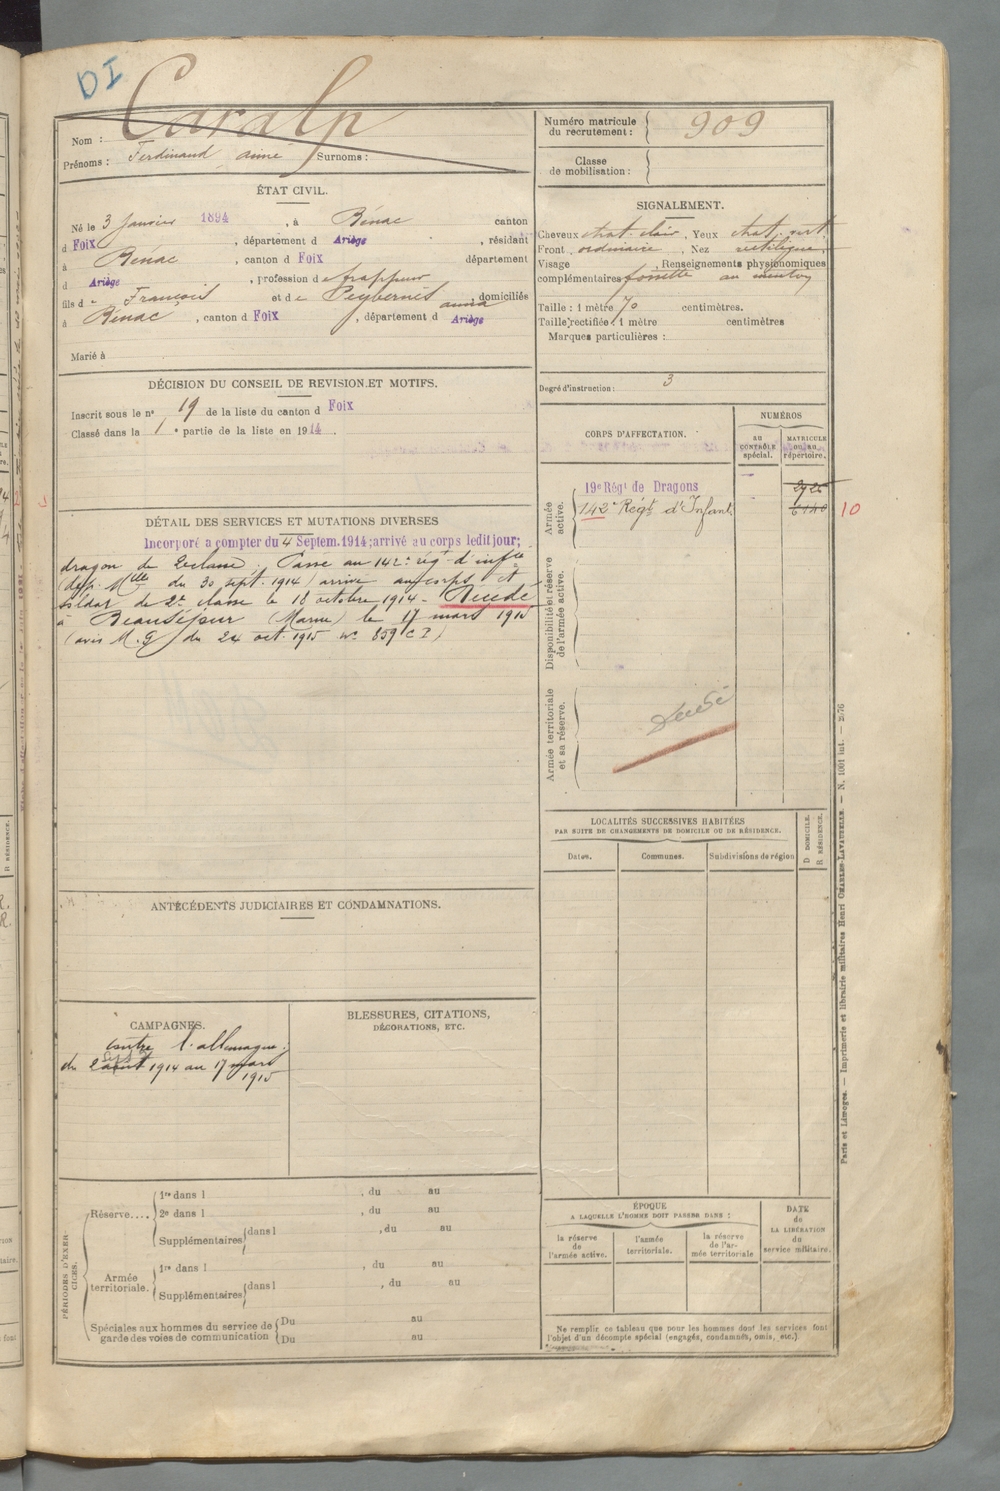 DI
Nom : Caralp
Prénoms : Ferdinand Aimé Surnoms :
Numéro matricule du recrutement : 909
Classe de mobilisation :
ÉTAT CIVIL.
Né le 3 Janvier 1894, à Bénac canton
d Foix, département d Ariège, résidant
à Bénac, canton d Foix département
d Ariège, profession de frappeur
fils de François et de Peybernès anna domiciliés
à Bénac, canton d Foix, département d Ariège
Marié à
SIGNALEMENT.
Cheveux chat. clair, Yeux chat. vert
Front ordinaire, Nez rectiligne
Visage , Renseignements physionomiques
complémentaires fossette au menton
Taille : 1 mètre 70 centimètres.
Taille rectifiée : 1 mètre centimètres
Marques particulières :
Degré d'instruction : 3
DÉCISION DU CONSEIL DE REVISION ET MOTIFS.
Inscrit sous le n° 19 de la liste du canton d Foix
Classé dans la 1e partie de la liste en 1914.
CORPS D'AFFECTATION.
NUMÉROS
au CONTRÔLE spécial.
MATRICULE ou au répertoire.
Armée active.
19e Régt de Dragons
142e Régt d'Infant. 6140 10
Disponibilité et réserve de l'armée active.
Armée territoriale et sa réserve.
Décédé
DÉTAIL DES SERVICES ET MUTATIONS DIVERSES
Incorporé a compter du 4 Septem. 1914; arrivé au corps ledit jour;
dragon de 2e classe. Passé au 142e rég. d'infie
(déc. Mlle du 30 sept. 1914) arrivé au corps et
soldat de 2e classe le 18 octobre 1914 - Décédé
à Beauséjour (Marne) le 17 mars 1915
(avis M.G du 24 oct. 1915 n° 859 C I)
LOCALITÉS SUCCESSIVES HABITÉES
PAR SUITE DE CHANGEMENTS DE DOMICILE OU DE RÉSIDENCE.
Dates. Communes. Subdivisions de région
D DOMICILE. R RÉSIDENCE.
ANTÉCÉDENTS JUDICIAIRES ET CONDAMNATIONS.
CAMPAGNES.
contre l'allemagne :
Sept
du 2 août 1914 au 17 mars
1915
BLESSURES, CITATIONS,
DÉCORATIONS, ETC.
PÉRIODES D'EXERCICES.
Réserve.... 1re dans l , du au
2e dans l , du au
Supplémentaires dans l , du au
Armée territoriale. 1re dans l , du au
Supplémentaires dans l , du au
Spéciales aux hommes du service de garde des voies de communication Du au
Du au
ÉPOQUE
A LAQUELLE L'HOMME DOIT PASSER DANS :
la réserve de l'armée active.
l'armée territoriale.
la réserve de l'armée territoriale
DATE de LA LIBÉRATION du service militaire.
Ne remplir ce tableau que pour les hommes dont les services font
l'objet d'un décompte spécial (engagés, condamnés, omis, etc.)
Paris et Limoges. — Imprimerie et librairie militaires Henri CHARLES-LAVAUZELLE. — N. 1001 int. — 2876